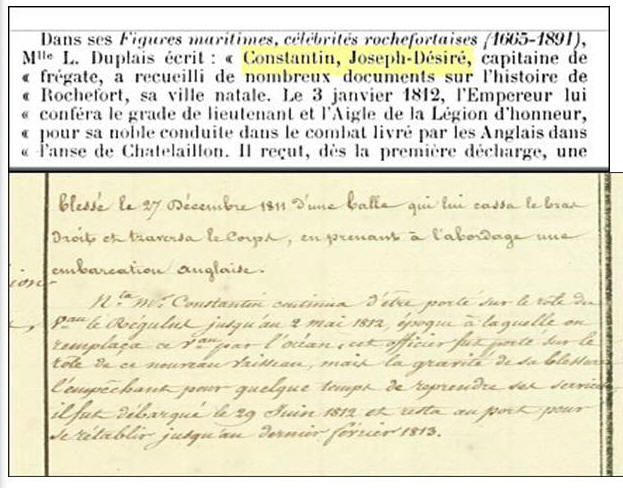 Dans ses Figures maritimes, célébrités rochefortaises (1665-1891),
Mlle L. Duplais écrit : « Constantin, Joseph-Désiré, capitaine de
« frégate, a recueilli de nombreux documents sur l'histoire de
« Rochefort, sa ville natale. Le 3 janvier 1812, l'Empereur lui
« conféra le grade de lieutenant et l'Aigle de la Légion d'honneur,
« pour sa noble conduite dans le combat livré par les Anglais dans
« l'anse de Chatelaillon. Il reçut, dès la première décharge, une
blessé le 27 Décembre 1811 d'une balle qui lui cassa le bras
droit et traversa le Corps, en prenant à l'abordage une
embarcation anglaise.
Nta Mr Constantin continua d'être porté sur le rôle du
Vau le Régulus jusqu'au 2 mai 1812, époque à laquelle on
remplaça ce Vau par l'océan; cet officier fut porté sur le
rôle de ce nouveau Vaisseau, mais la gravité de sa blessure
l'empêchant pour quelque temps de reprendre ses
il fut débarqué le 29 Juin 1812 et resta au port pour
se rétablir jusqu'au dernier février 1813.